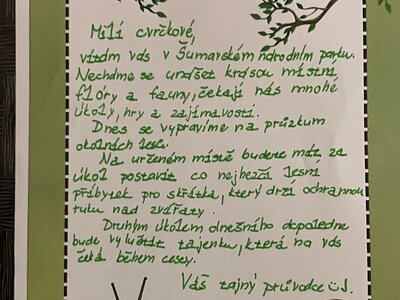 Milí cvrčkové,
vítám vás v Šumavském národním parku.
Nechdme se unášet krásou místní
flóry a fauny, čekají nás mnohé
úkoly, hry a zajímavosti.
Dnes se vypravíme na průzkum
okolních lesů.
Na určeném místě budete mít za
úkol postavit co nejhezčí lesní
příbytek pro skřítka, který drží ochrannou
ruku nad zvířaty.
Druhým úkolem dnešního dopoledne
bude vyluštit tajenku, která na vás
čeká během cesty.
Váš tajný průvodce